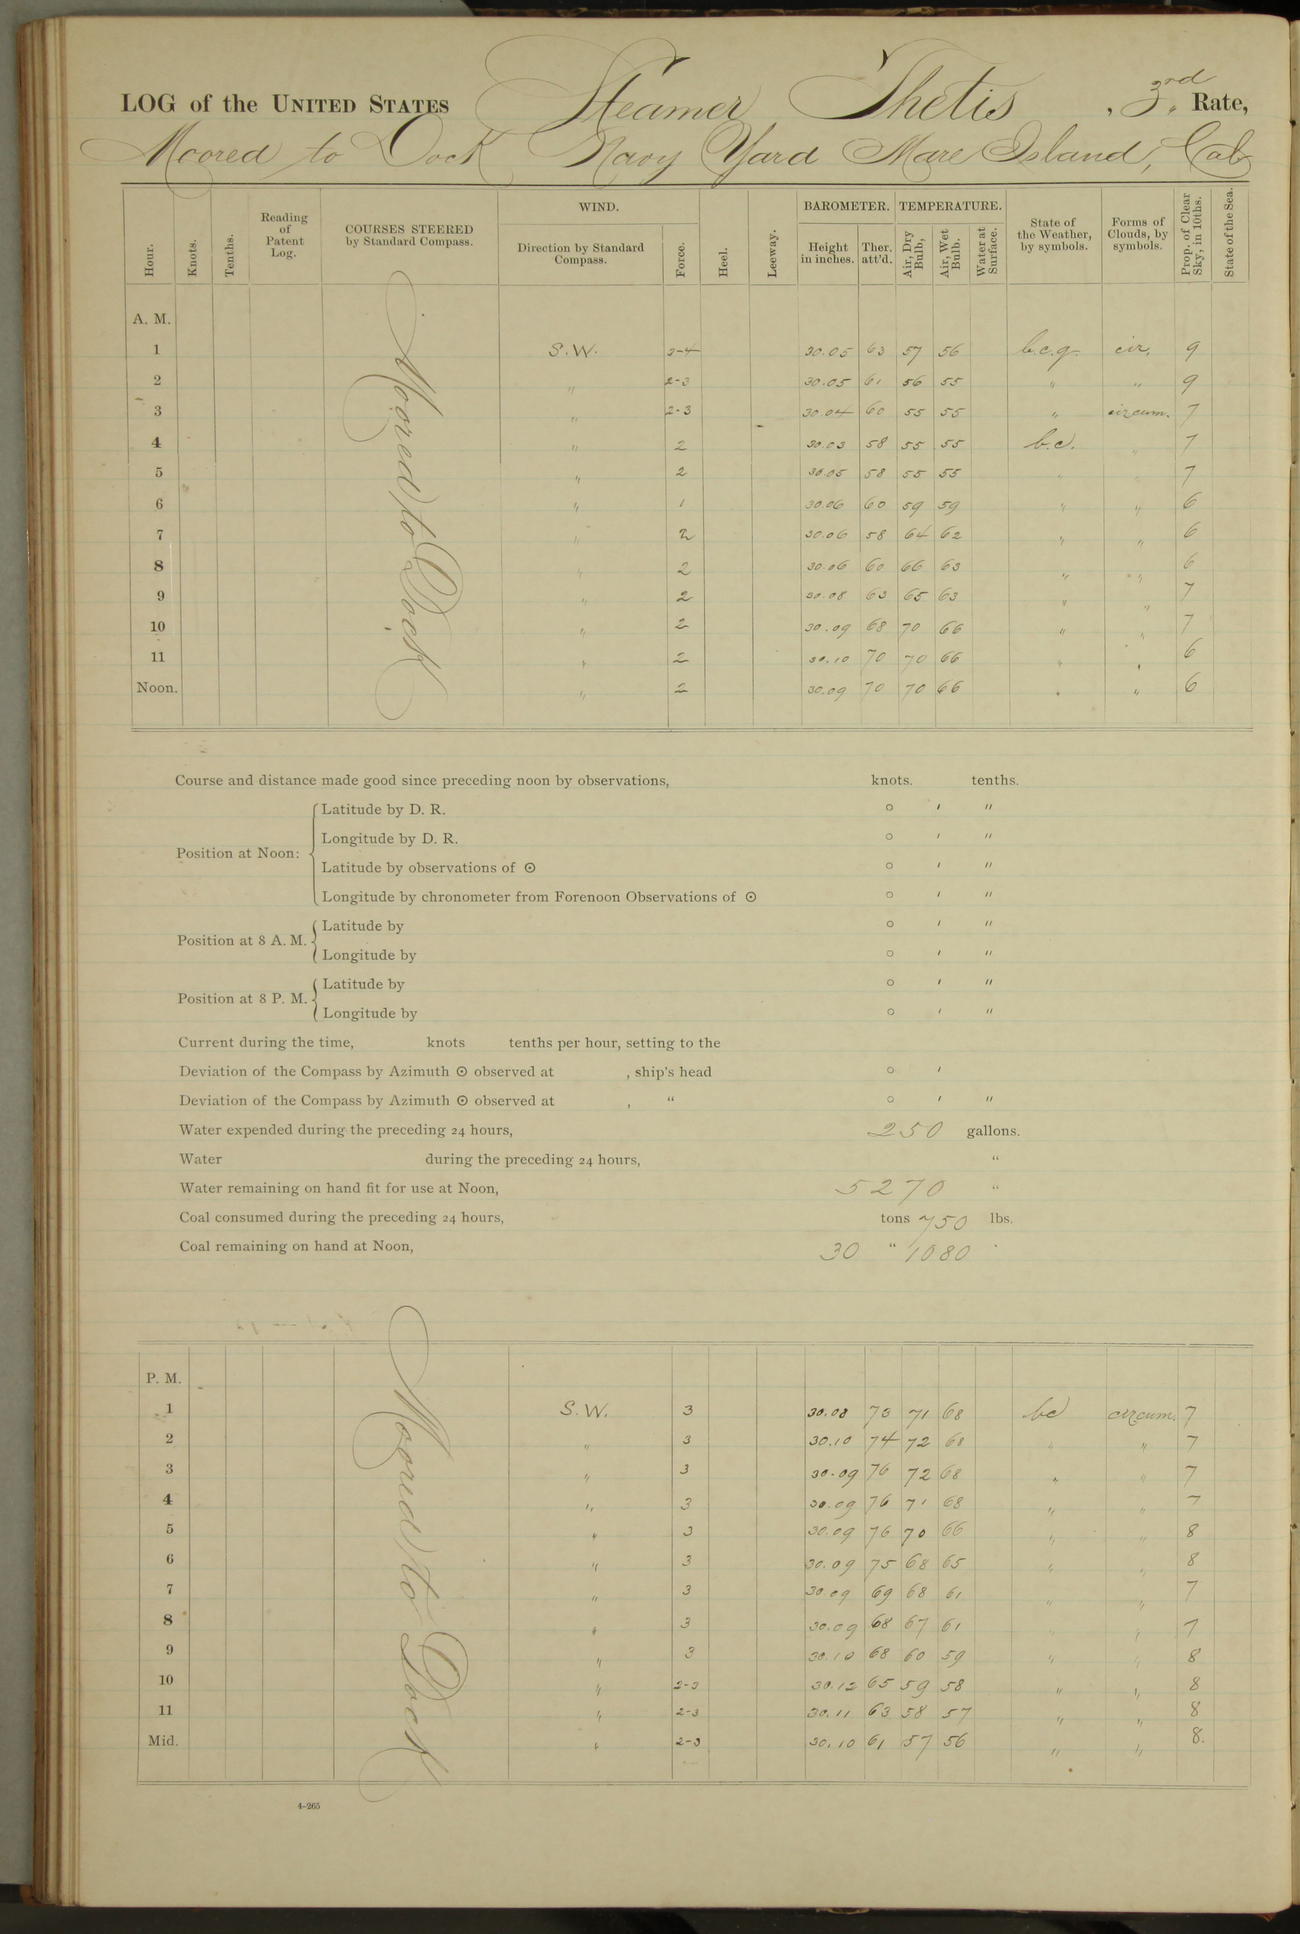 LOG of the UNITED STATES Steamer Thetis, 3rd Rate,
Moored to Dock Navy Yard Mare Island, Cal
Hour. Knots. Tenths. Reading of Patent Log. COURSES STEERED by Standard Compass. WIND. Direction by Standard Compass. Force. Heel. Leeway. BAROMETER. Height in inches. Ther. att'd. TEMPERATURE. Air, Dry Bulb, Air, Wet Bulb. Water at Surface. State of the Weather, by symbols. Forms of Clouds, by symbols. Prop. of Clear Sky, in 10ths. State of the Sea.
A. M.
Moored to Dock
1 S.W. 3-4 30.05 63 57 56 b.c.q. cir. 9
2 " 2-3 30.05 61 56 55 " " 9
3 " 2-3 30.04 60 55 55 " circum. 7
4 " 2 30.03 58 55 55 b.c. " 7
5 " 2 30.05 58 55 55 " " 7
6 " 1 30.06 60 59 59 " " 6
7 " 2 30.06 58 64 62 " " 6
8 " 2 30.06 60 66 63 " " 6
9 " 2 30.08 63 65 63 " " 7
10 " 2 30.09 68 70 66 " " 7
11 " 2 30.10 70 70 66 " " 6
Noon. " 2 30.09 70 70 66 " " 6
Course and distance made good since preceding noon by observations, knots. tenths.
Position at Noon:
Latitude by D. R. ° ' "
Longitude by D. R. ° ' "
Latitude by observations of ☉ ° ' "
Longitude by chronometer from Forenoon Observations of ☉ ° ' "
Position at 8 A. M.
Latitude by ° ' "
Longitude by ° ' "
Position at 8 P. M.
Latitude by ° ' "
Longitude by ° ' "
Current during the time, knots tenths per hour, setting to the
Deviation of the Compass by Azimuth ☉ observed at , ship's head ° '
Deviation of the Compass by Azimuth ☉ observed at , " ° ' "
Water expended during the preceding 24 hours, 250 gallons.
Water during the preceding 24 hours, "
Water remaining on hand fit for use at Noon, 5270 "
Coal consumed during the preceding 24 hours, tons 750 lbs.
Coal remaining on hand at Noon, 30 " 1080 "
P. M.
Moored to Dock
1 S.W. 3 30.08 73 71 68 bc circum. 7
2 " 3 30.10 74 72 68 " " 7
3 " 3 30.09 76 72 68 " " 7
4 " 3 30.09 76 71 68 " " 7
5 " 3 30.09 76 70 66 " " 8
6 " 3 30.09 75 68 65 " " 8
7 " 3 30.09 69 68 61 " " 7
8 " 3 30.09 68 67 61 " " 7
9 " 3 30.10 68 60 59 " " 8
10 " 2-3 30.12 65 59 58 " " 8
11 " 2-3 30.11 63 58 57 " " 8
Mid. " 2-3 30.10 61 57 56 " " 8.
4-265